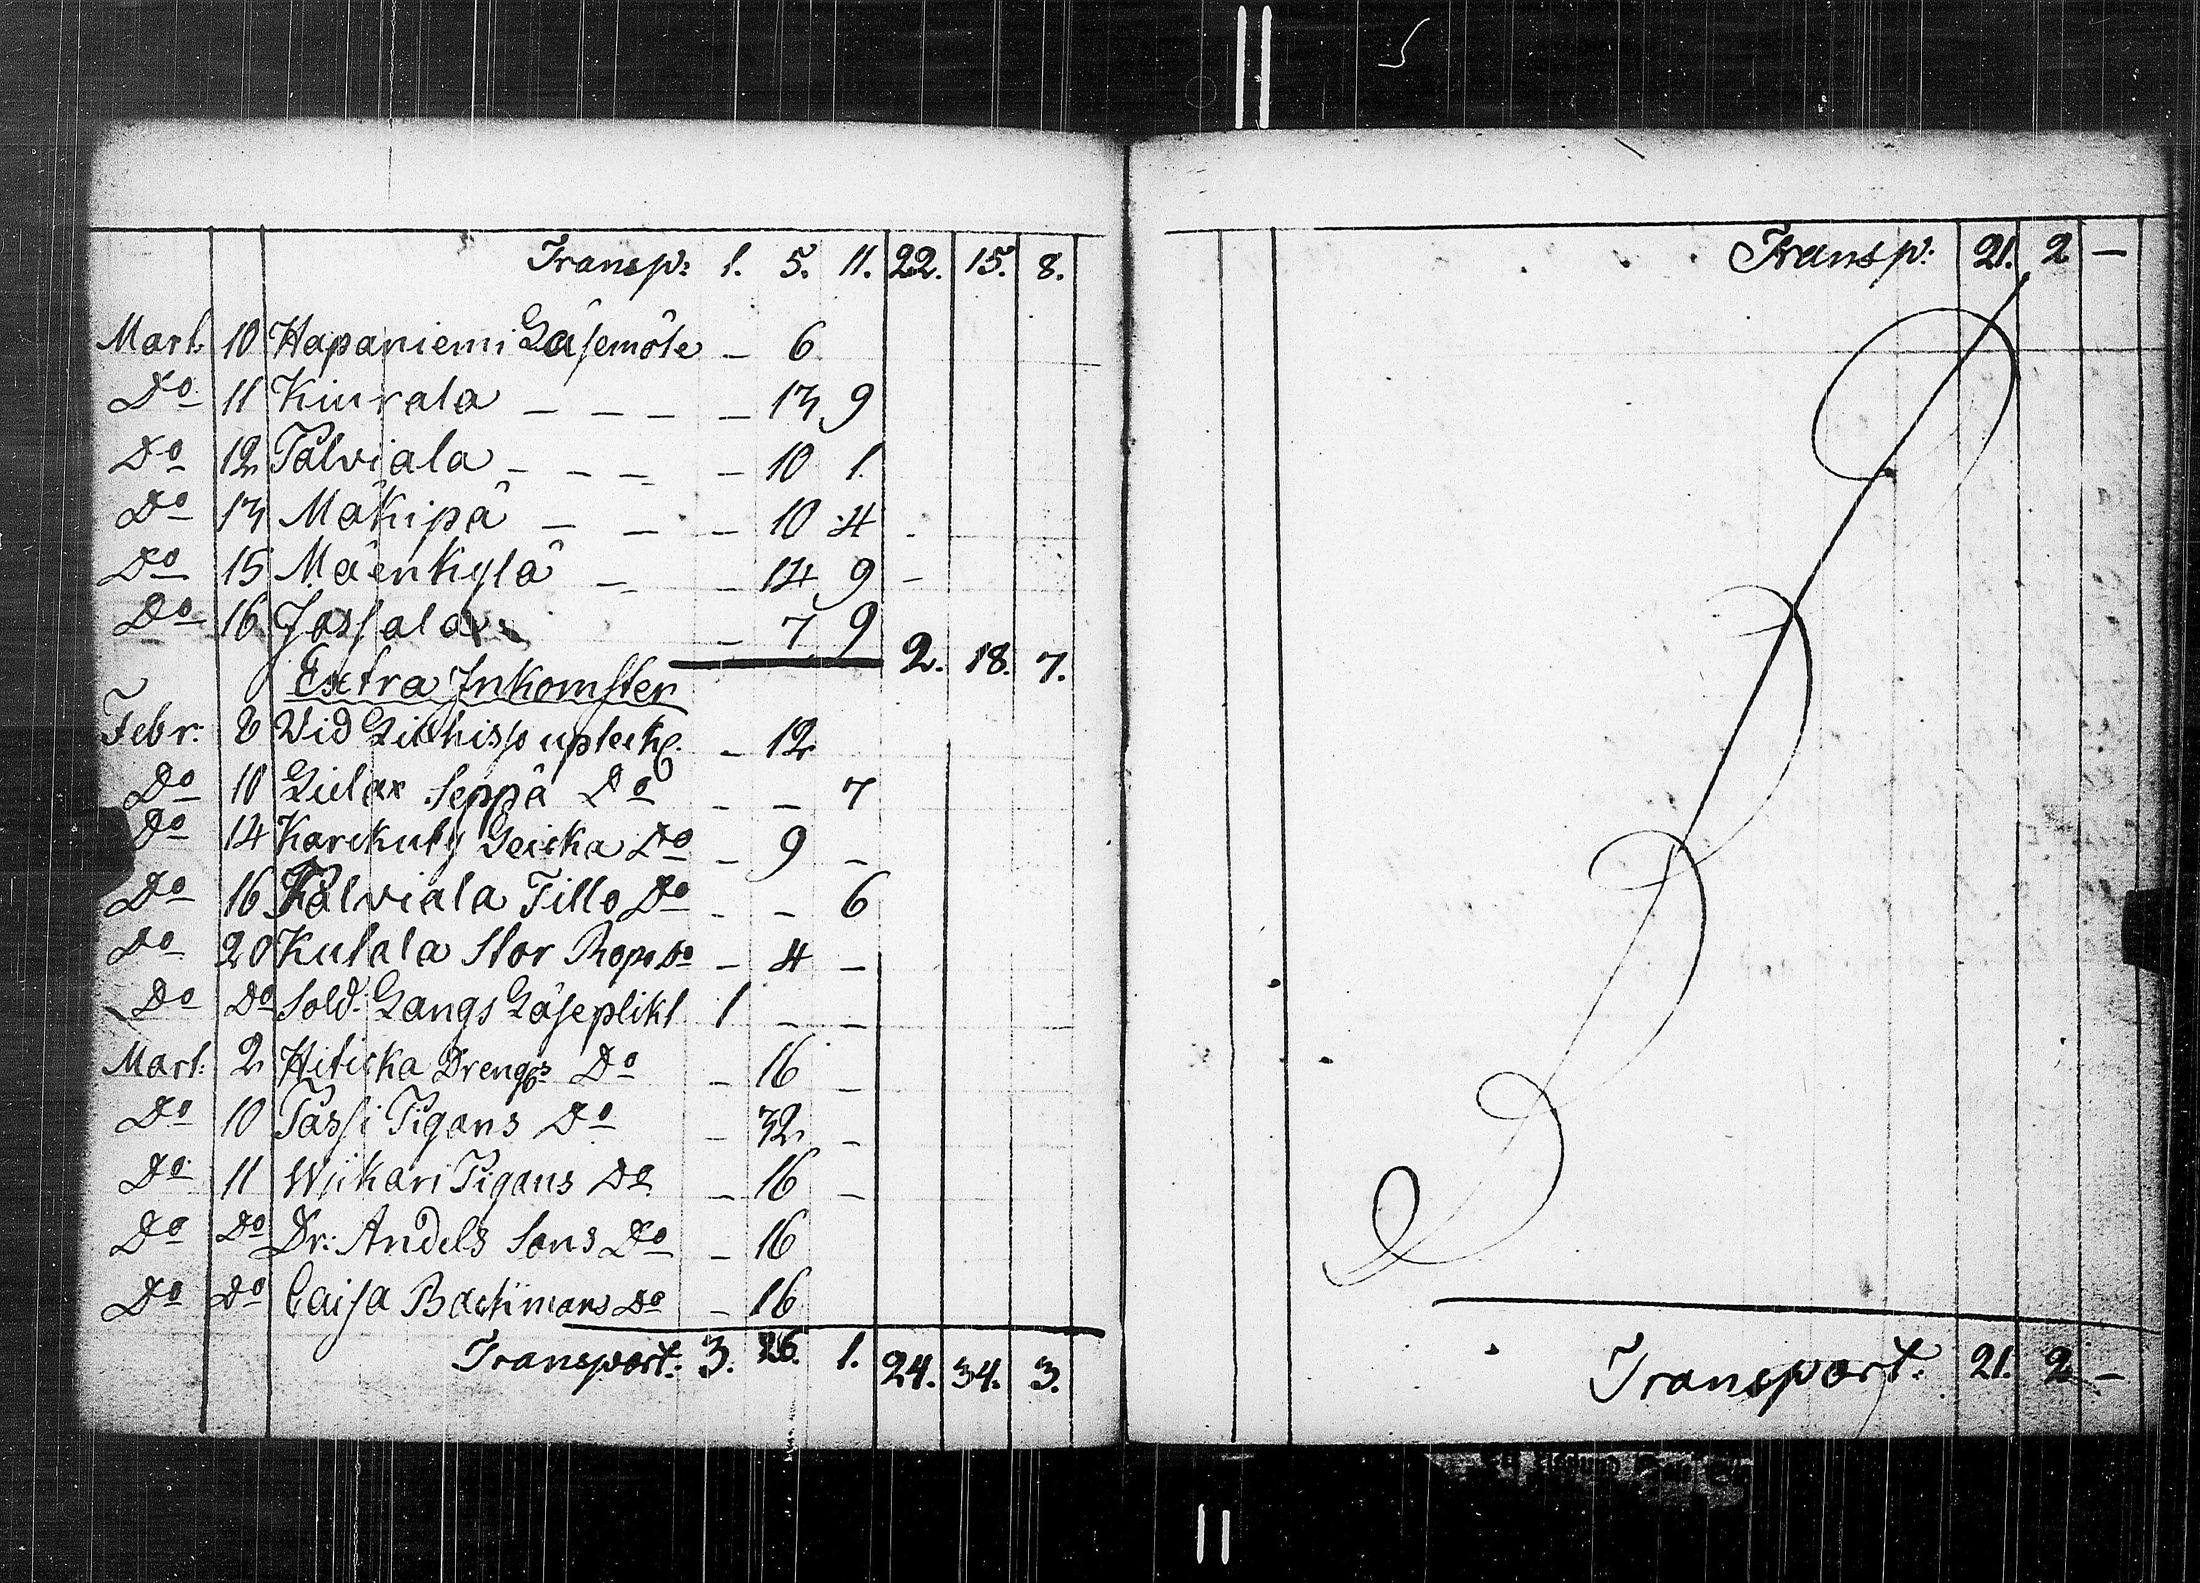 Transp: 1. 5. 11. 22. 15. 8.
Mart: 10 Hapaniemi Läsemöte - 6
Do 11 Kiurala - - - - 13 9
Do 12 Pälviala - - - - 10 1
Do 13 Mäkipä - - - 10 4
Do 15 Mäenkylä - - 14 9 -
Do 16 Jassala - 7 9 2. 18. 7.
Extra Inkomster
Febr: 8 Vid - 12
Do 10 Seppä Do - - 7
Do 14 Do - 9 -
Do 16 Pälviala Tillo Do - - 6
Do 20 Kutala Stor Do - 4 -
Do Do Sold: Langs Läseplikt 1 - -
Mart: 2 Drengs Do - 16 -
Do 10 Passi Pigans Do - 32 -
Do 11 Wikari Pigans Do - 16 -
Do Do Dr: Andels Sons Do - 16
Do Do Caisa Backmans Do - 16
Transport: 3. 26. 1. 24. 34. 3.
Transp: 21. 2 -
Transport: 21. 2 -
5